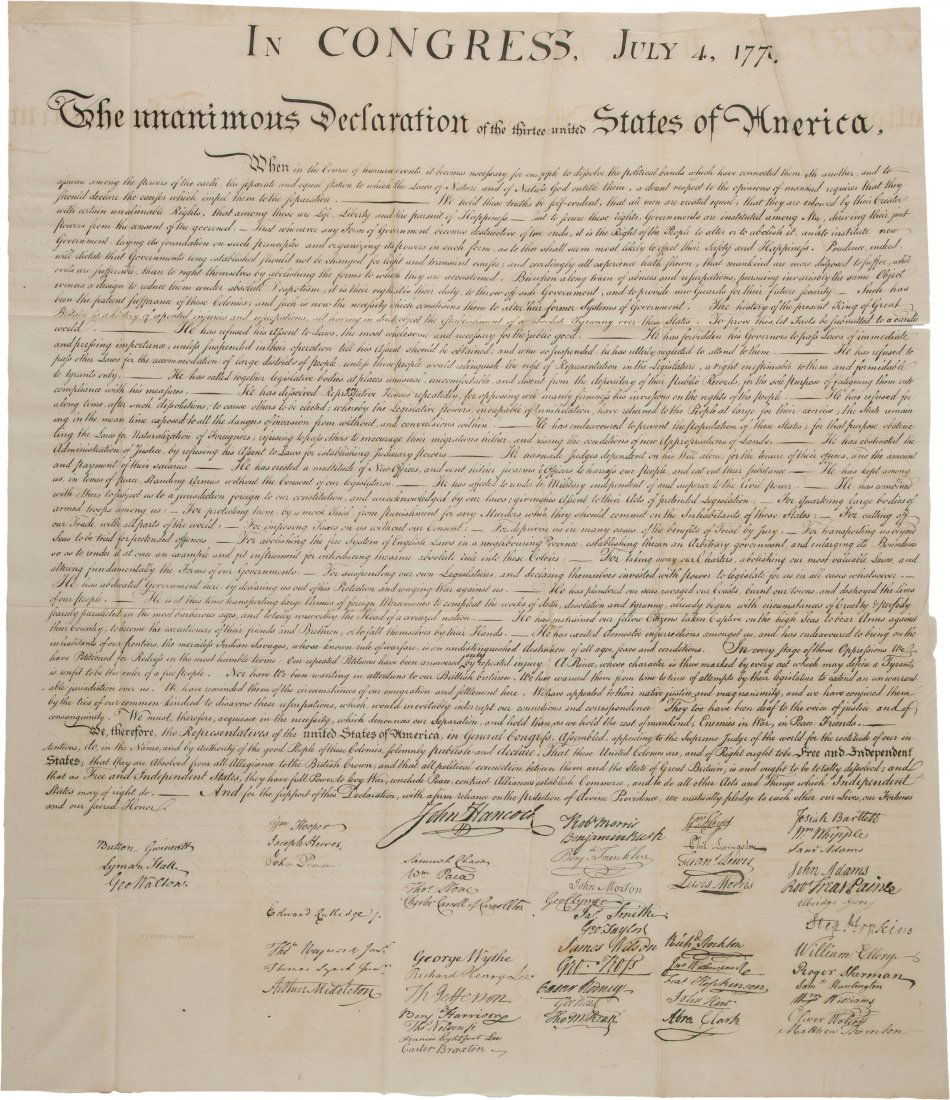 IN CONGRESS, JULY 4, 177
The unanimous Declaration of the thirtee united States of America.
When in the Course of human events, it becomes necessary for one people to dissolve the political bands which have connected them with another, and to
assume among the powers of the earth, the separate and equal station to which the Laws of Nature and of Nature's God entitle them, a decent respect to the opinions of mankind requires that they
should declare the causes which impel them to the separation. — We hold these truths to be self-evident, that all men are created equal, that they are endowed by their Creator
with certain unalienable Rights, that among these are Life, Liberty and the pursuit of Happiness — That to secure these rights, Governments are instituted among Men, deriving their just
powers from the consent of the governed, — That whenever any Form of Government becomes destructive of these ends, it is the Right of the People to alter or to abolish it, and to institute new
Government, laying its foundation on such principles and organizing its powers in such form, as to them shall seem most likely to effect their Safety and Happiness. Prudence, indeed,
will dictate that Governments long established should not be changed for light and transient causes; and accordingly all experience hath shewn, that mankind are more disposed to suffer, while
evils are sufferable, than to right themselves by abolishing the forms to which they are accustomed. But when a long train of abuses and usurpations, pursuing invariably the same Object
evinces a design to reduce them under absolute Despotism, it is their right, it is their duty, to throw off such Government, and to provide new Guards for their future security. — Such has
been the patient sufferance of these Colonies; and such is now the necessity which constrains them to alter their former Systems of Government. The history of the present King of Great
Britain is a history of repeated injuries and usurpations, all having in direct object the establishment of an absolute Tyranny over these States. To prove this, let Facts be submitted to a candid
world. — He has refused his Assent to Laws, the most wholesome and necessary for the public good. — He has forbidden his Governors to pass Laws of immediate
and pressing importance, unless suspended in their operation till his Assent should be obtained; and when so suspended, he has utterly neglected to attend to them. — He has refused to
pass other Laws for the accommodation of large districts of people, unless those people would relinquish the right of Representation in the Legislature, a right inestimable to them and formidable
to tyrants only. — He has called together legislative bodies at places unusual, uncomfortable, and distant from the depository of their Public Records, for the sole purpose of fatiguing them into
compliance with his measures. — He has dissolved Representative Houses repeatedly, for opposing with manly firmness his invasions on the rights of the people. — He has refused for
a long time, after such dissolutions, to cause others to be elected; whereby the Legislative powers, incapable of Annihilation, have returned to the People at large for their exercise; the State remain-
ing in the mean time exposed to all the dangers of invasion from without, and convulsions within. — He has endeavoured to prevent the population of these States; for that purpose obstruc-
ting the Laws for Naturalization of Foreigners; refusing to pass others to encourage their migrations hither, and raising the conditions of new Appropriations of Lands. — He has obstructed the
Administration of Justice, by refusing his Assent to Laws for establishing Judiciary powers. — He has made Judges dependent on his Will alone, for the tenure of their offices, and the amount
and payment of their salaries. — He has erected a multitude of New Offices, and sent hither swarms of Officers to harrass our people, and eat out their substance. — He has kept among
us, in times of peace, Standing Armies without the Consent of our legislatures. — He has affected to render the Military independent of and superior to the Civil power. — He has combined
with others to subject us to a jurisdiction foreign to our constitution, and unacknowledged by our laws; giving his Assent to their Acts of pretended Legislation: — For Quartering large bodies of
armed troops among us: — For protecting them, by a mock Trial, from punishment for any Murders which they should commit on the Inhabitants of these States: — For cutting off
our Trade with all parts of the world: — For imposing Taxes on us without our Consent: — For depriving us in many cases, of the benefits of Trial by Jury: — For transporting us beyond
Seas to be tried for pretended offences — For abolishing the free System of English Laws in a neighbouring Province, establishing therein an Arbitrary government, and enlarging its Boundaries
so as to render it at once an example and fit instrument for introducing the same absolute rule into these Colonies: — For taking away our Charters, abolishing our most valuable Laws, and
altering fundamentally the Forms of our Governments: — For suspending our own Legislatures, and declaring themselves invested with power to legislate for us in all cases whatsoever. —
He has abdicated Government here, by declaring us out of his Protection and waging War against us. — He has plundered our seas, ravaged our Coasts, burnt our towns, and destroyed the lives
of our people. — He is at this time transporting large Armies of foreign Mercenaries to compleat the works of death, desolation and tyranny, already begun with circumstances of Cruelty & perfidy
scarcely paralleled in the most barbarous ages, and totally unworthy the Head of a civilized nation. — He has constrained our fellow Citizens taken Captive on the high Seas to bear Arms against
their Country, to become the executioners of their friends and Brethren, or to fall themselves by their Hands. — He has excited domestic insurrections amongst us, and has endeavoured to bring on the
inhabitants of our frontiers, the merciless Indian Savages, whose known rule of warfare, is an undistinguished destruction of all ages, sexes and conditions. In every stage of these Oppressions We
have Petitioned for Redress in the most humble terms: Our repeated Petitions have been answered only by repeated injury. A Prince, whose character is thus marked by every act which may define a Tyrant,
is unfit to be the ruler of a free people. Nor have We been wanting in attentions to our Brittish brethren. We have warned them from time to time of attempts by their legislature to extend an unwarrant-
able jurisdiction over us. We have reminded them of the circumstances of our emigration and settlement here. We have appealed to their native justice and magnanimity, and we have conjured them
by the ties of our common kindred to disavow these usurpations, which would inevitably interrupt our connections and correspondence. They too have been deaf to the voice of justice and of
consanguinity. We must, therefore, acquiesce in the necessity, which denounces our Separation, and hold them, as we hold the rest of mankind, Enemies in War, in Peace Friends. —
We, therefore, the Representatives of the united States of America, in General Congress, Assembled, appealing to the Supreme Judge of the world for the rectitude of our in-
tentions, do, in the Name, and by Authority of the good People of these Colonies, solemnly publish and declare, That these United Colonies are, and of Right ought to be Free and Independent
States; that they are Absolved from all Allegiance to the British Crown, and that all political connection between them and the State of Great Britain, is and ought to be totally dissolved; and
that as Free and Independent States, they have full Power to levy War, conclude Peace, contract Alliances, establish Commerce, and to do all other Acts and Things which Independent
States may of right do. — And for the support of this Declaration, with a firm reliance on the protection of divine Providence, we mutually pledge to each other our Lives, our Fortunes
and our sacred Honor.
John Hancock
Button Gwinnett
Lyman Hall
Geo Walton.
Wm Hooper
Joseph Hewes,
John Penn
Edward Rutledge /.
Thos Heyward Junr.
Thomas Lynch Junr.
Arthur Middleton
Samuel Chase
Wm Paca
Thos Stone
Charles Carroll of Carrollton
George Wythe
Richard Henry Lee
Th Jefferson
Benj Harrison
Thos Nelson jr
Francis Lightfoot Lee
Carter Braxton
Robt Morris
Benjamin Rush
Benj. Franklin
John Morton
Geo Clymer
Jas. Smith
Geo. Taylor
James Wilson
Geo. Ross
Caesar Rodney
Geo Read
Tho M:Kean
Wm Floyd
Phil. Livingston
Frans. Lewis
Lewis Morris
Richd. Stockton
Jno Witherspoon
Fras. Hopkinson
John Hart
Abra Clark
Josiah Bartlett
Wm Whipple
Saml Adams
John Adams
Robt Treat Paine
Elbridge Gerry
Step. Hopkins
William Ellery
Roger Sherman
Saml Huntington
Wm Williams
Oliver Wolcott
Matthew Thornton